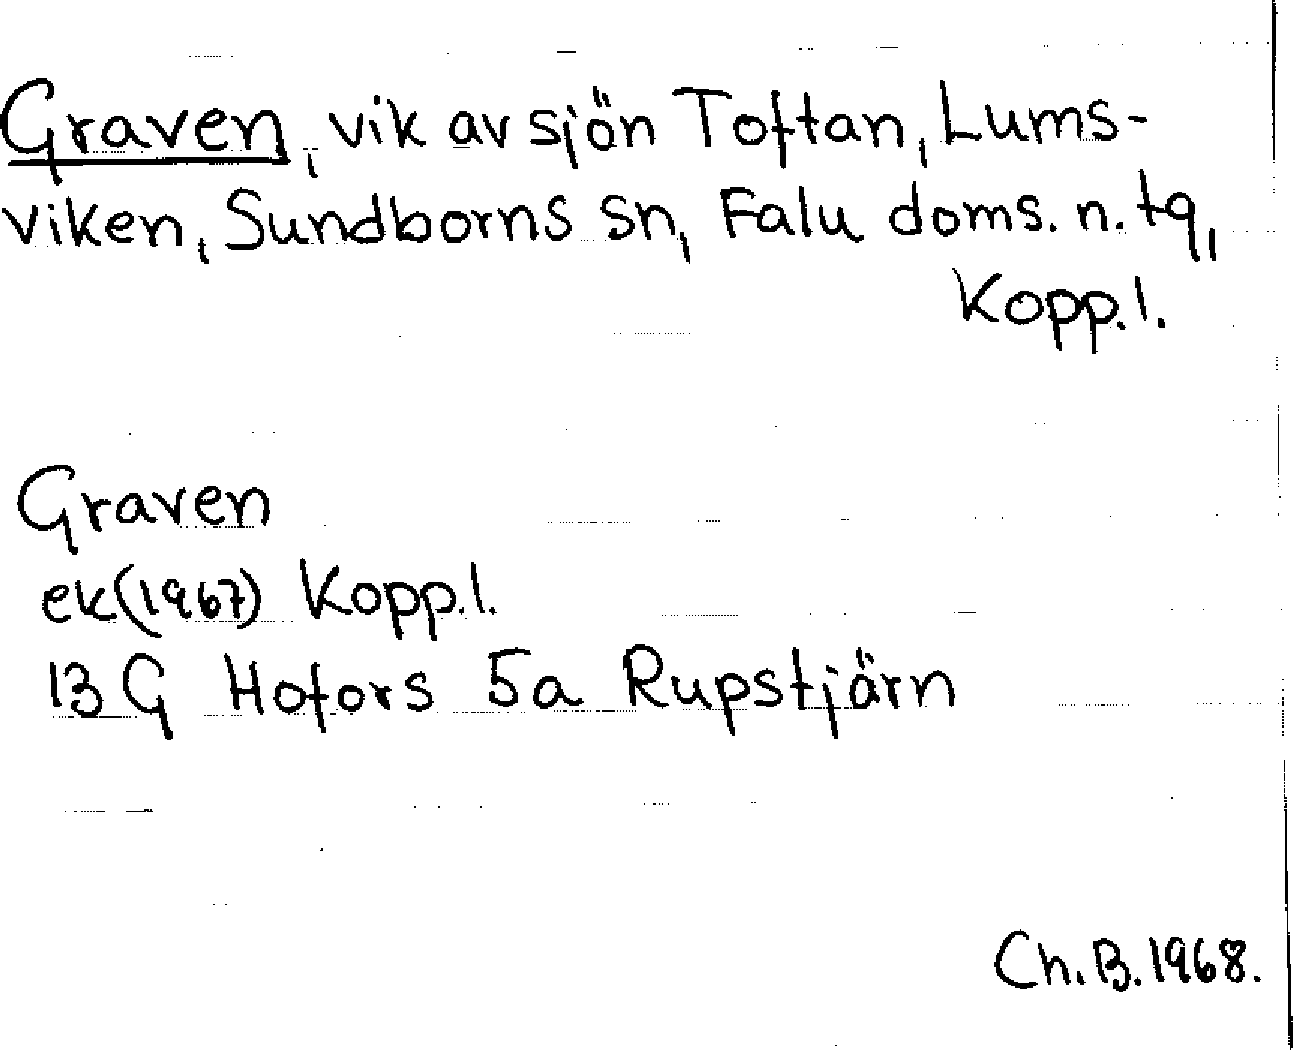 Graven, vik av sjön Toftan, Lums-
viken, Sundborns sn, Falu doms. n. tg,
Kopp. l.
Graven
ek (1967) Kopp. l.
13 G Hofors 5a Rupstjärn
Ch. B. 1968.